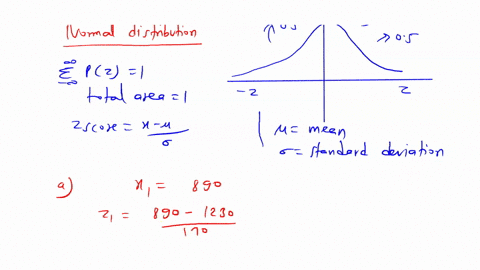 Normal distribution
∞
Σ P(z) = 1
-∞
total area = 1
z score = x-μ / σ
0.5
≥ 0.5
-z
z
μ = mean
σ = standard deviation
a) x₁ = 890
z₁ = 890 - 1230 / 170